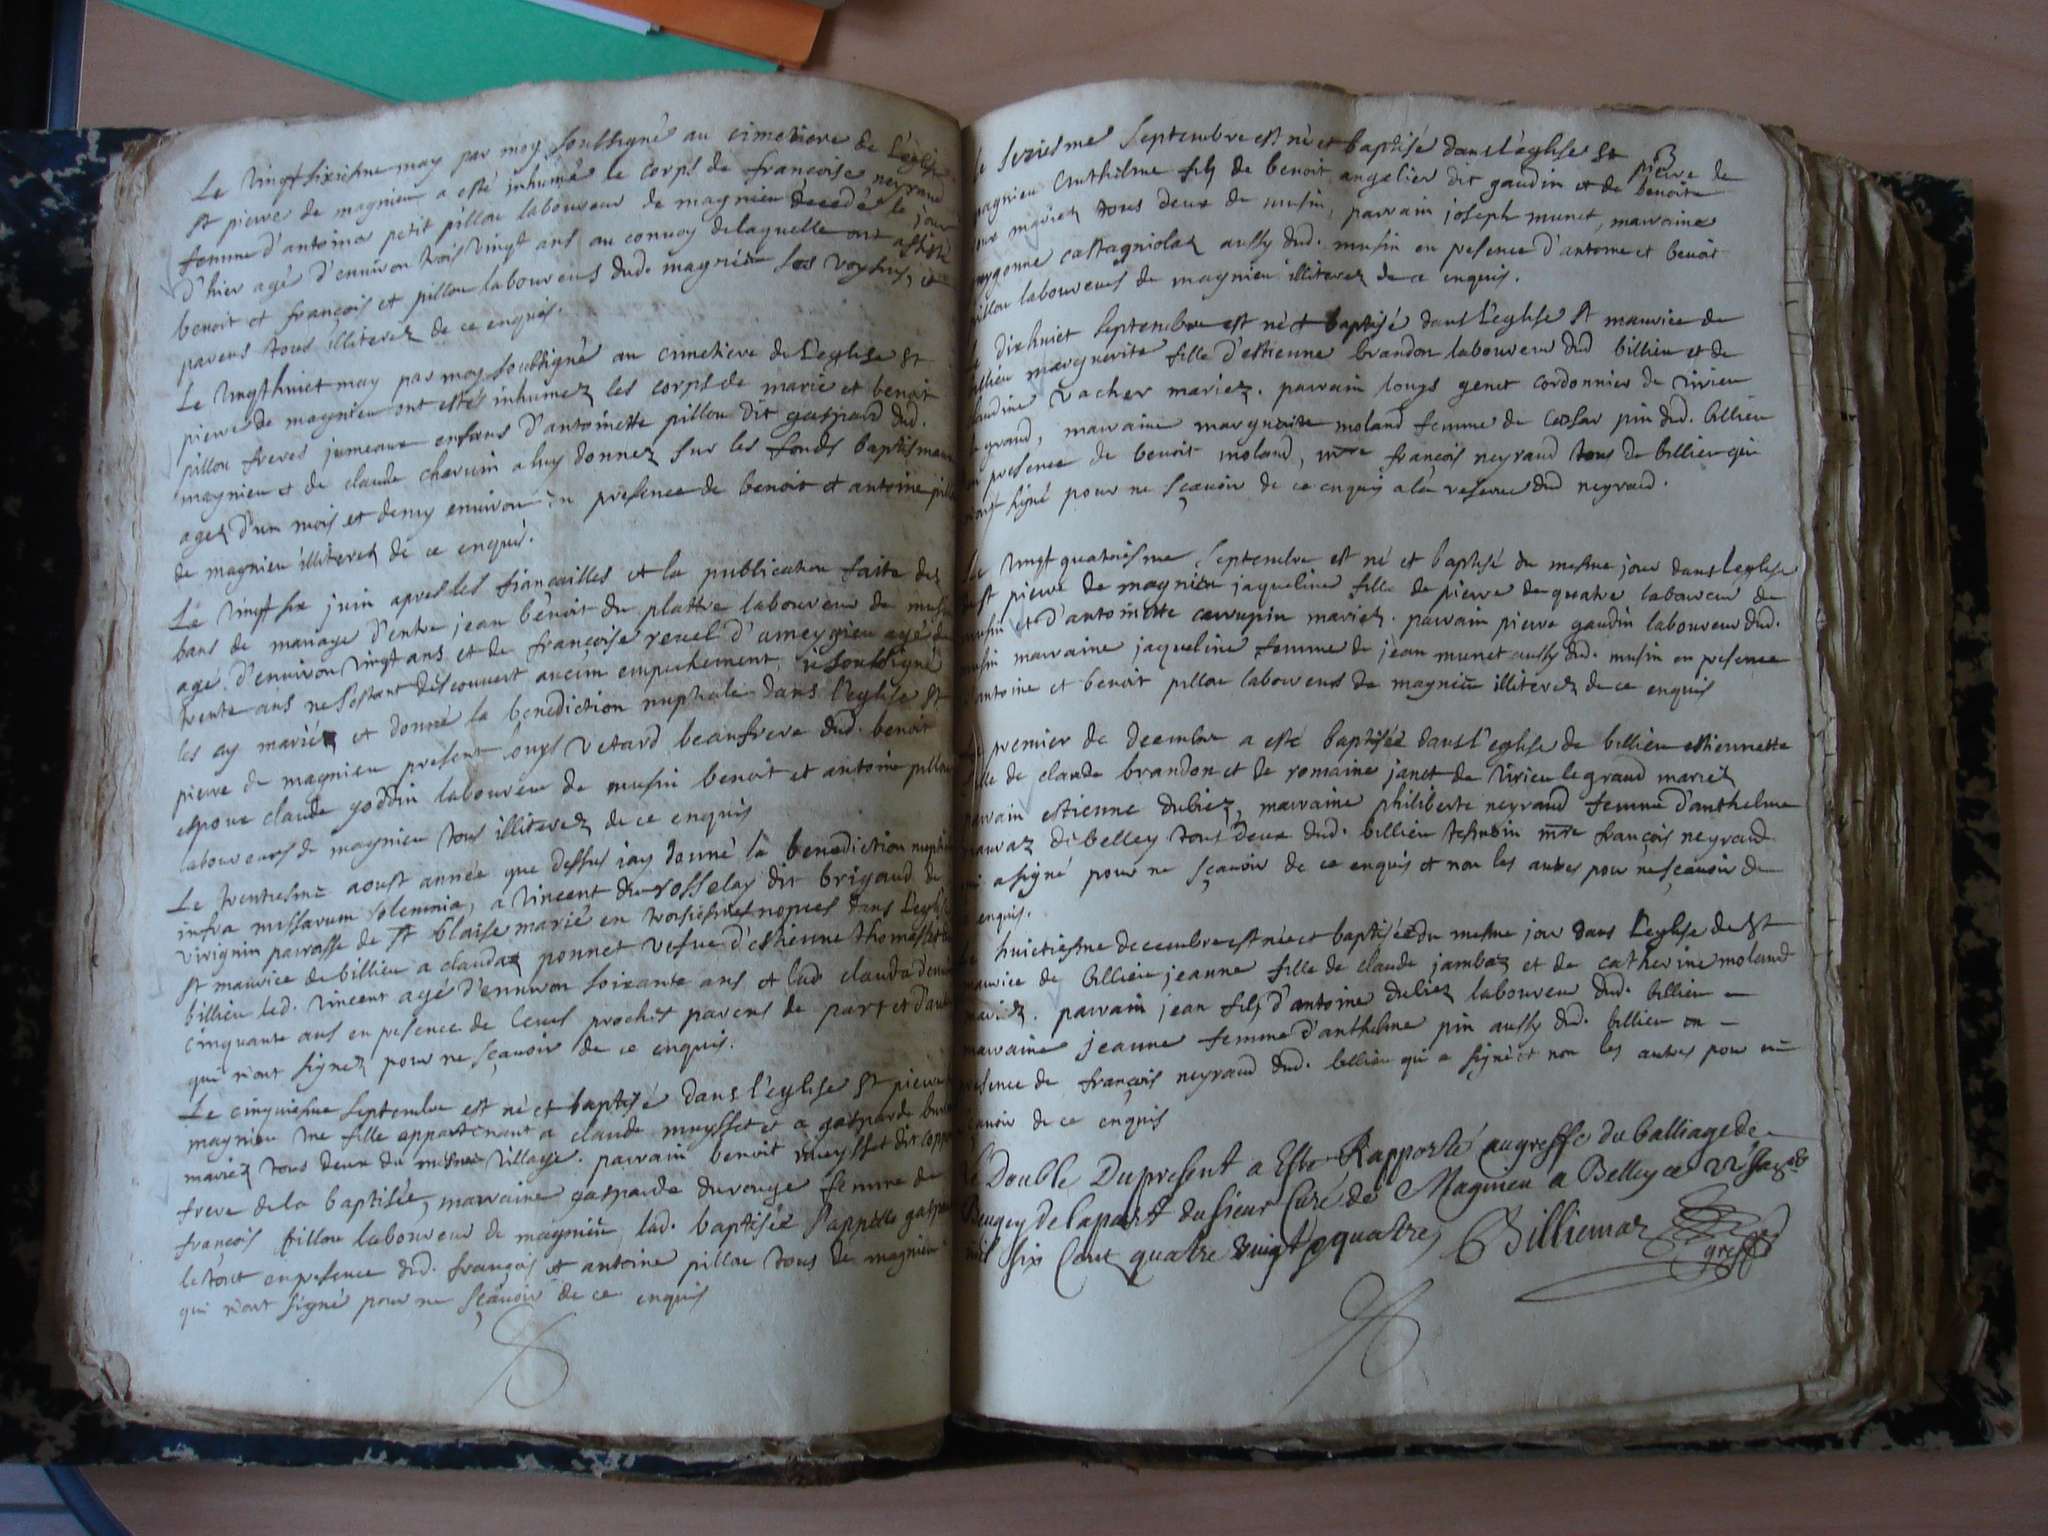 Le vingt sixiesme may par moy soubsigné au cimetiere de L'eglise
st pierre de magnieu a esté inhumé le corps de francoise neyraud
femme d'antoine petit pillou laboureur de magnieu décedé le jour
d'hier agé d'environ trois vingt ans au convoy de laquelle ont assisté
benoit et françois et pillou laboureurs dud. magnieu ses voysins, et
parens tous illiterez de ce enquis.
Le vingthuict may par moy soubsigné au cimetiere de L'eglise st
pierre de magnieu ont estés inhumez les corps de marie et benoit
pillou freres jumeaux enfans d'antoinette pillou dit gaspard dud.
magnieu et de claude charvin a luy donnez sur les fonds baptismaux
agez d'un mois et demy environ en presence de benoit et antoine pillou
de magnieu illiterez de ce enquis.
Le vingt six juin apres les fiancailles et la publication faite des
bans de mariage d'entre jean benoit du plattre laboureur de musin
agé d'environ vingt ans et de françoise revel d'ameygnieu agé de
trente ans ne s'estant descouvert aucun empechement, je soubsigné
les ay mariéz et donné la benediction nuptiale dans l'eglise st
pierre de magnieu present louys vetard beaufrere dud. benoit
espoux claude goddin laboureur de musin benoit et antoine pillou
laboureurs de magnieu tous illiterez de ce enquis
Le trentiesme aoust année que dessus jay donné la benediction nuptiale
infra missarum solemnia, a vincent du rosselay dit brigaud de
virignin parroisse de st blaise marié en troisiesmes nopces dans l'eglise
st maurice de billieu a claudaz ponnet vefue d'estienne thomasset
billieu led. vincent agé d'environ soixante ans et lad clauda d'environ
cinquante ans en presence de leurs proches parens de part et d'autre
qui n'ont signez pour ne sçavoir de ce enquis.
Le cinquiesme septembre est né et baptisé dans l'eglise st pierre
magnieu une fille appartenant a claude muysset et a gasparde
mariez tous deux du mesme village. parrain benoit muysset dit
frere de la baptisée, marraine gasparde durouge femme de
françois pillou laboureur de magnieu, lad. baptisée s'appelle gasparde
le tout en presence dud. françois et antoine pillou tous de magnieu
qui n'ont signé pour ne sçavoir de ce enquis
Le seziesme septembre est né et baptisé dans l'église st pierre de
magnieu Anthelme fils de benoit angelier dit gaudin et de benoite
mariez tous deux de musin, parrain joseph munet, marraine
castagniolaz aussy dud. musin en presence d'antoine et benoit
pillou laboureurs de magnieu illiterez de ce enquis.
Le dixhuict septembre est né et baptisé dans L'eglise st maurice de
billieu marguerite fille d'estienne brandon laboureur dud billieu et de
claudine vacher mariez. parrain louys genet cordonnier de virieu
le grand, marraine marguerite moland femme de cesar pin dud. billieu
en presence de benoit moland, mre françois neyraud tous de billieu qui
n'ont signé pour ne sçavoir de ce enquis a la reserve dud neyraud.
Le vingt quatriesme septembre est né et baptisé du mesme jour dans l'eglise
de st pierre de magnieu jaqueline fille de pierre dequatre laboureur de
musin et d'antoinette carrupin mariez. parrain pierre gaudin laboureur dud.
musin marraine jaqueline femme de jean munet aussy dud. musin en presence
d'antoine et benoit pillou laboureurs de magnieu illiterez de ce enquis
Le premier de decembre a esté baptisée dans l'eglise de billieu estiennette
fille de claude brandon et de romaine janet de virieu le grand mariez
parrain estienne dubiez, marraine philiberte neyraud femme d'anthelme
mavraz de belley tous deux dud. billieu tesmoin mre françois neyraud
qui a signé pour ne sçavoir de ce enquis et non les autres pour ne sçavoir de
ce enquis.
Le huictiesme decembre est née et baptisée du mesme jour dans l'eglise de st
maurice de billieu jeanne fille de claude jambaz et de catherine moland
mariez. parrain jean fils d'antoine dubiez laboureur dud. billieu
marraine jeanne femme d'anthelme pin aussy dud. billieu en
presence de françois neyraud dud. billieu qui a signé et non les autres pour ne
sçavoir de ce enquis
Le Double Du present a Esté Rapporté au greffe du balliage de
Beugey de la part du sieur Curé de Magnieu a Belley ce 22e
mil six Cent quatre vingt quatre, Billiemaz
greff